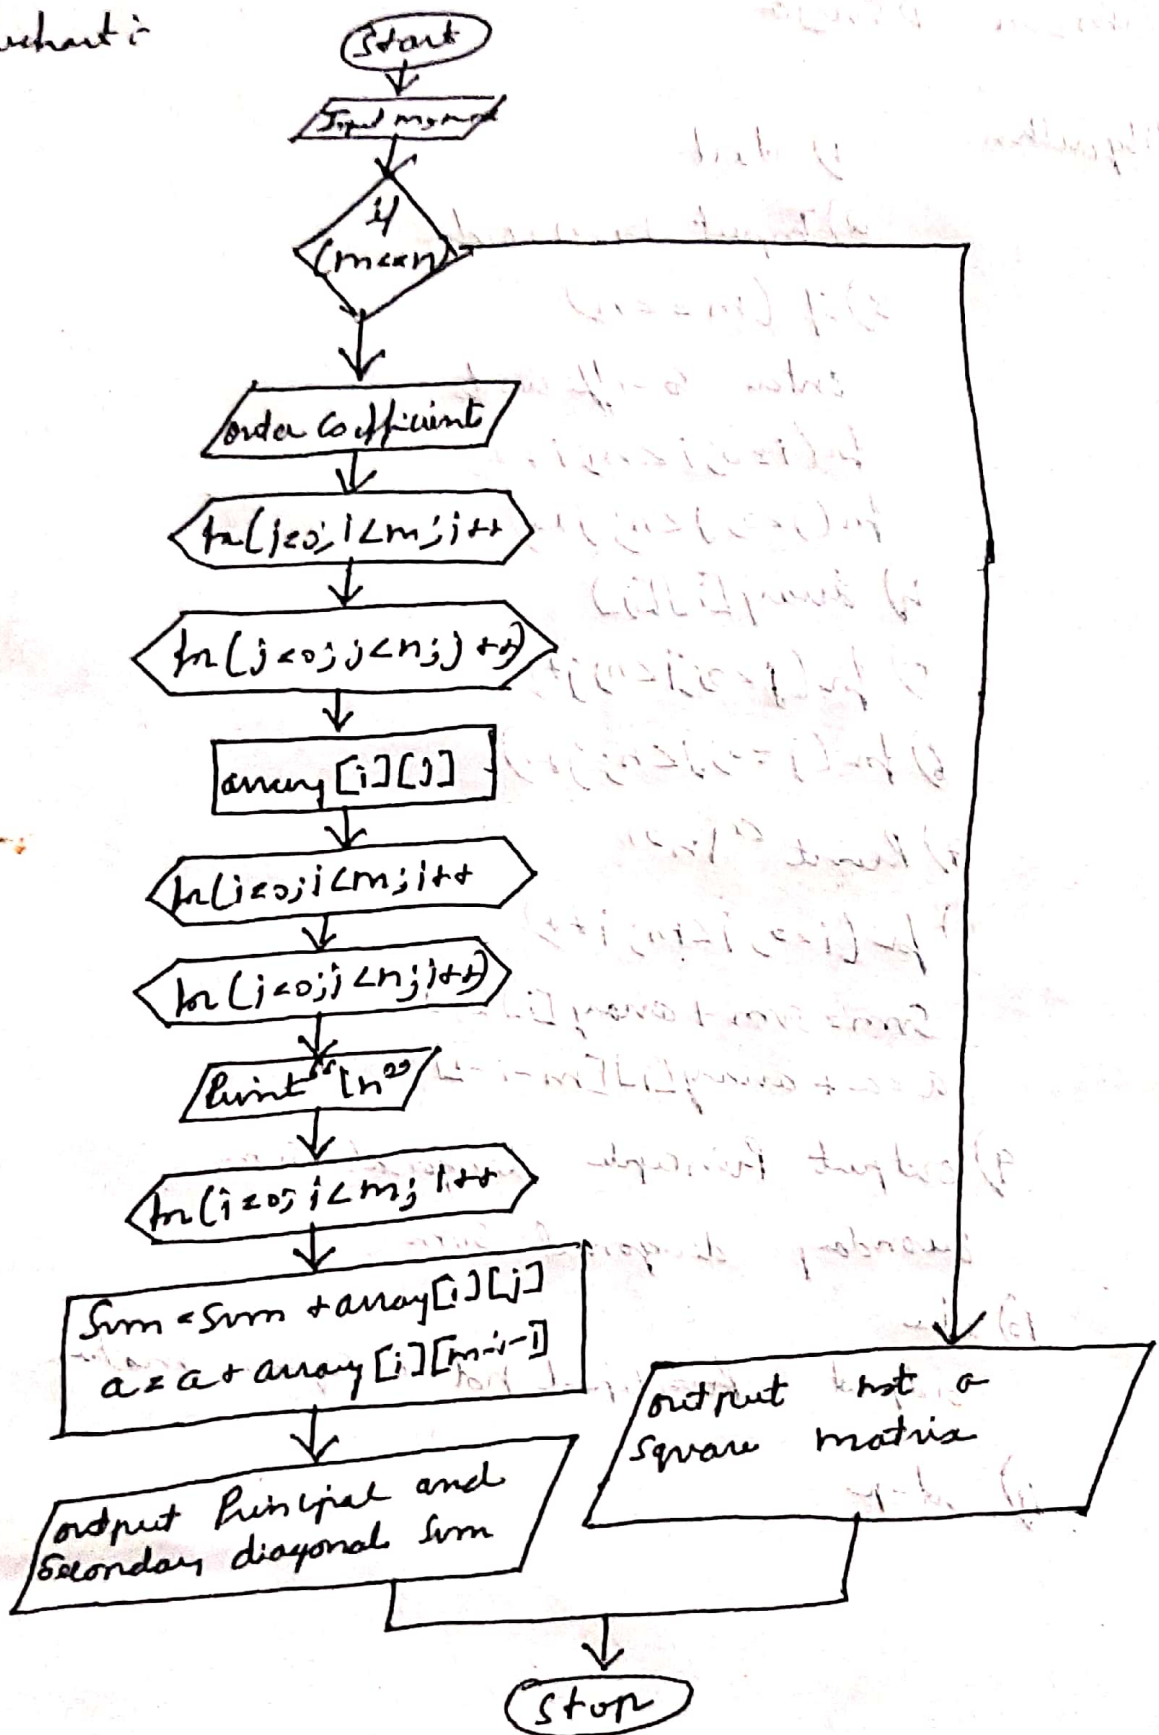 Start
Input
if
(m==n)
order coefficient
for(i=0; i<m; i++
for(j=0; j<n; j++)
array[i][j]
for(i=0; i<m; i++
for(j=0; j<n; j++)
Print "\n"
for(i=0; i<m; i++
Sum = Sum + array[i][j]
a = a + array[i][m-i-1]
output Principal and
Secondary diagonal Sum
output not a
square matrix
Stop